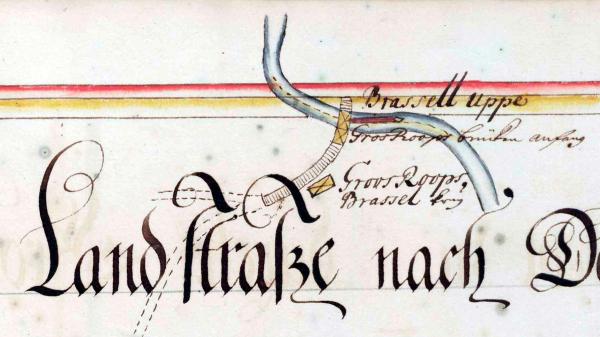 Brassell uppe
GrosRoops brücken anfang
GroosRoops,
Brassel krug
Landstraße nach